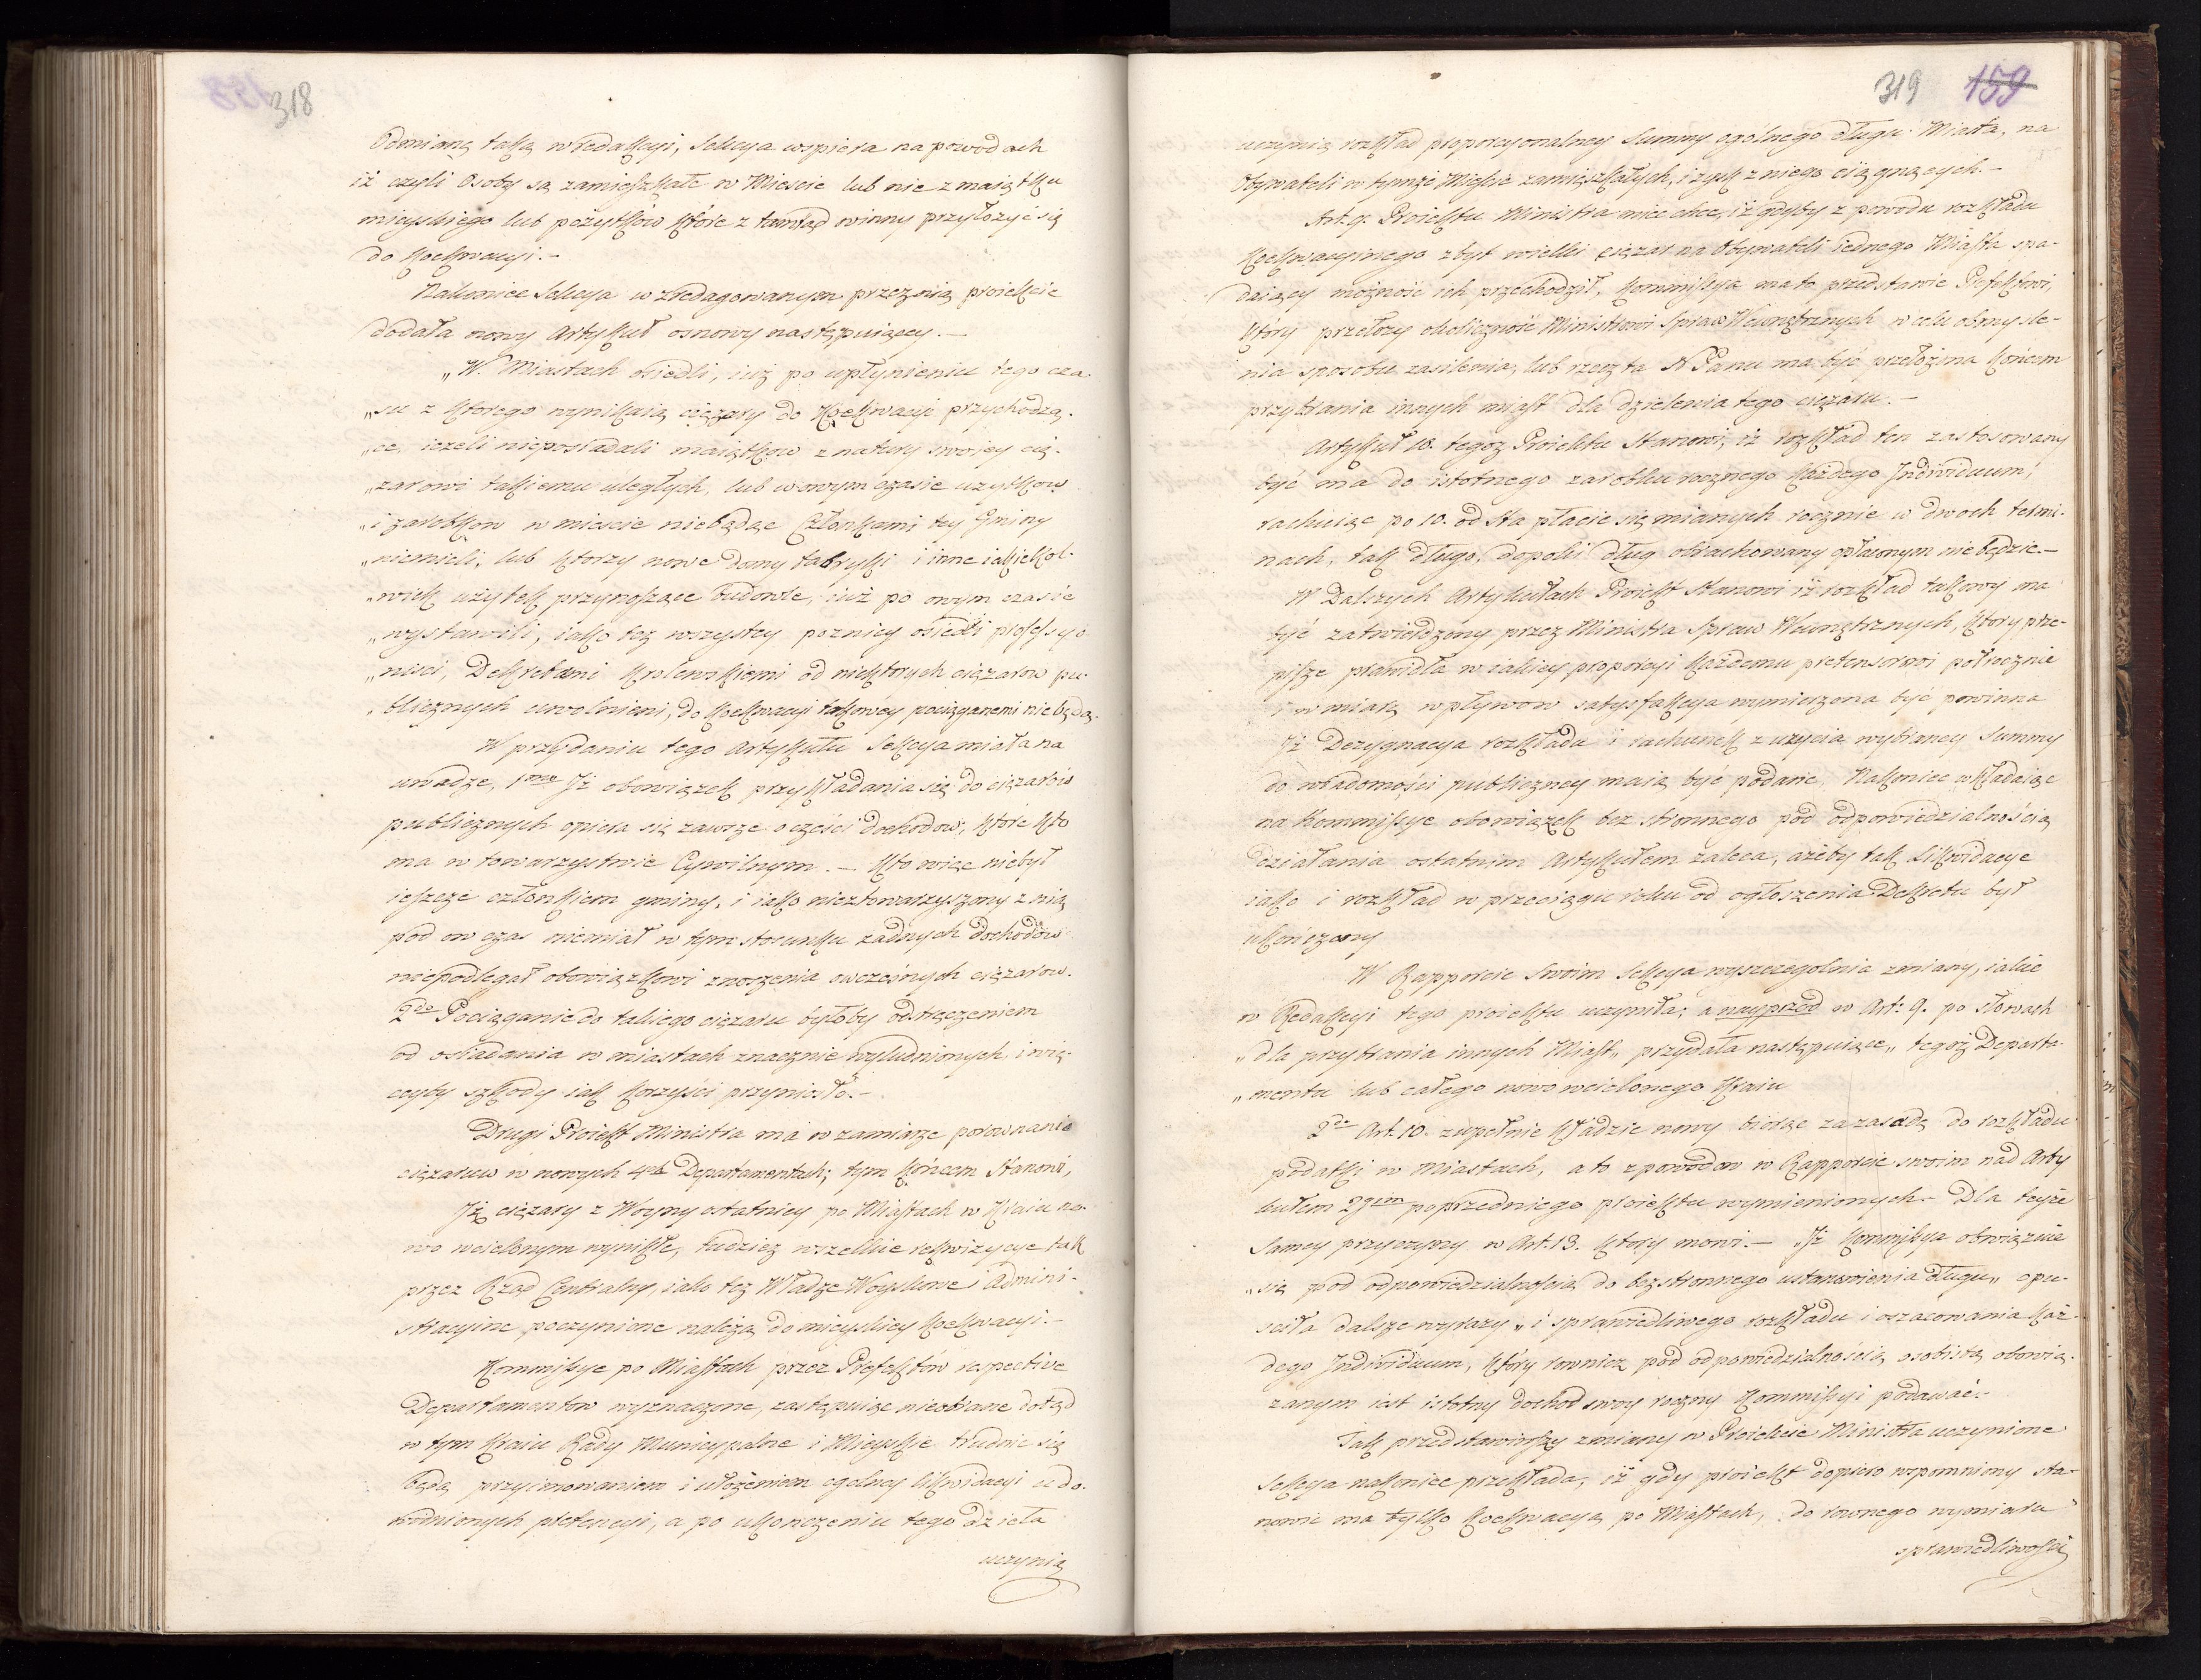 318
Odmianę taką w redakcyi, Sekcya wspiera na powodach
iż czyli Osoby są zamieszkałe w Mieście lub nie z maiątku
mieyskiego lub pożytków które z tamtąd winny przyłożyć się
do Koekwacyi. –
Nakoniec Sekcya w zredagowanym przez nią proiekcie
dodała nowy Artykuł osnowy następuiącey. –
„W. Miastach osiedli, iuż po upłynieniu tego cza-
„su z ktorego wynikaią ciężary do Koekwacyi przychodzą-
„ce, ieżeli nieposiadali maiątkow z natury swoiey cię-
„żarowi takiemu uległych, lub w owym czasie użytkow
„i zarobkow w mieście niebędąc Członkami tey Gminy
„niemieli, lub ktorzy nowe domy fabryki i inne iakiekol-
„wiek użytek przynoszące budowle, iuż po owym czasie
„wystawili, iako też wszyscy pozniey osiedli professyo-
„niści, Dekretami Krolewskiemi od niektorych ciężarow pu-
„blicznych uwolnieni, do Koekwacyi takowey pociąganemi nie będą.
W przydaniu tego Artykułu Sekcya miała na
uwadze, 1mo Iż obowiązek przykładania się do ciężarów
publicznych opiera się zawsze o części dochodow, które kto
ma w towarzystwie Cywilnym. – Kto więc niebył
ieszcze członkiem gminy, i iako nieztowarzyszony z nią
pod on czas niemiał w tym stosunku żadnych dochodów
niepodlegał obowiązkowi znoszenia owczesnych ciężarow.
2do Pociąganie do takiego ciężaru byłoby odstręczeniem
od osiadania w miastach znacznie wyludnionych i wię-
ceyby szkody iak korzyści przyniosło. –
Drugi Proiekt Ministra ma w zamiarze porownanie
ciężarow w nowych 4ch Departamentach; tym końcem Stanowi,
Iż ciężary z Woyny ostatniey po Miastach w Kraiu no-
wo wcielonym wynikłe, tudzież wszelkie rekwizycye tak
przez Rząd Centralny, iako też Władze Woyskowe i Admini-
stracyine poczynione należą do mieyskiey Koekwacyi. –
Kommissye po Miastach przez Prefektów respective
Departamentow wyznaczone, zastępuiąc nieobrane dotąd
w tym Kraiu Rady Municypalne i Mieyskie trudnić się
będą przyimowaniem i ułożeniem ogolney likwidacyi udo-
wodnionych pretensyi, a po ukonczeniu tego dzieła
uczynią
319 159
uczynią rozkład proporcyonalney Summy ogólnego długu Miasta, na
Obywateli w tymże Mieście zamieszkałych, i zysk z niego ciągnących. –
Art. 9. Proiektu Ministra mieć chce, iż gdyby z powodu rozkładu
Koekwacyinego zbyt wielki ciężar na Obywateli iednego Miasta spa-
daiący możność ich przechodził, Kommissya ma to przedstawić Prefektowi,
Który przełoży okoliczność Ministrowi Spraw Wewnętrznych w celu obmyśle-
nia sposobu zasilenia, lub rzecz ta N Panu ma być przełożona końcem
przybrania innych miast dla dzielenia tego ciężaru. –
Artykuł 10. tegoż Proiektu Stanowi, iż rozkład ten zastosowany
być ma do istotnego zarobku rocznego każdego Individuum,
rachuiąc po 10. od sta płacić się mianych rocznie w dwoch termi-
nach, tak długo, dopoki dług obrachowany opłaconym nie będzie. –
W Dalszych Artykułach Proiekt Stanowi iż rozkład takowy ma
być zatwierdzony przez Ministra Spraw Wewnętrznych, ktory prze-
pisze prawidła w iakiey proporcyi każdemu pretensorowi połrocznie
i w miarę wpływow satysfakcya wymierzona być powinna
Iż Dezygnacya rozkładu i rachunek z użycia wybraney Summy
do wiadomości publiczney maią być podane. Nakoniec wkładaiąc
na Kommissye obowiązek bezstronnego pod odpowiedzialnością
działania ostatnim Artykułem zaleca, ażeby tak Likwidacye
iako i rozkład w przeciągu roku od ogłoszenia Dekretu był
ukończony
W Rapporcie Swoim Sekcya wyszczegolnia zmiany, iakie
w Redakcyi tego proiektu uczyniła; a nayprzod w Art: 9. po słowach
„dla przybrania innych Miast„ przydała następuiące„ tegoż Departa-
„mentu lub całego nowo wcielonego Kraiu
2do Art. 10. zupełnie kładzie nowy biorąc za zasadę do rozkładu
podatki w miastach, a to z powodow w Rapporcie swoim nad Arty-
kułem 29tym poprzedniego proiektu wymienionych. – Dla teyże
samey przyczyny w Art. 13. ktory mowi. – „Iż Kommissya obowiązuie
„się pod odpowiedzialnością do bezstronnego ustanowienia długu„ opu-
ściła dalsze wyrazy „i sprawiedliwego rozkładu i oszacowania każ-
dego Individuum, który rownież pod odpowiedzialnością osobistą obowią-
zanym iest istotny dochod swoy roczny Kommissyi podawać. –
Tak przedstawiwszy zmiany w Proiekcie Ministra uczynione
Sekcya nakoniec przekłada, iż gdy proiekt dopiero wspomniony sta-
nowić ma tylko Koekwacyą po Miastach, do rownego wymiaru
sprawiedliwości